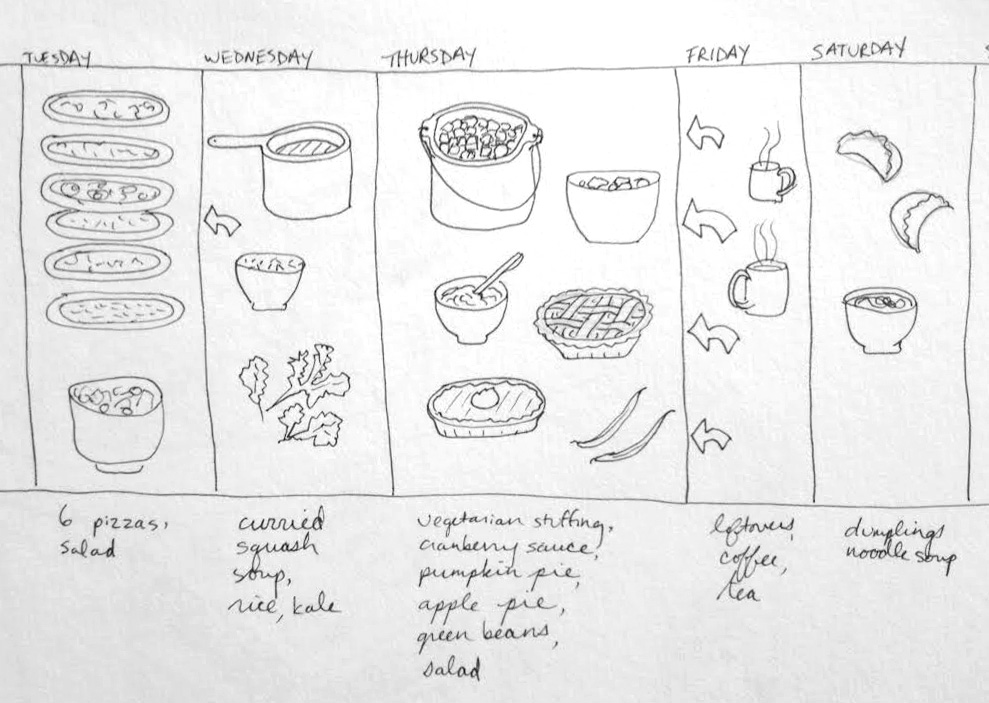 TUESDAY
WEDNESDAY
THURSDAY
FRIDAY
SATURDAY
6 pizzas,
salad
curried
squash
soup,
rice, kale
vegetarian stuffing,
cranberry sauce,
pumpkin pie,
apple pie,
green beans,
salad
leftovers,
coffee,
tea
dumplings
noodle soup